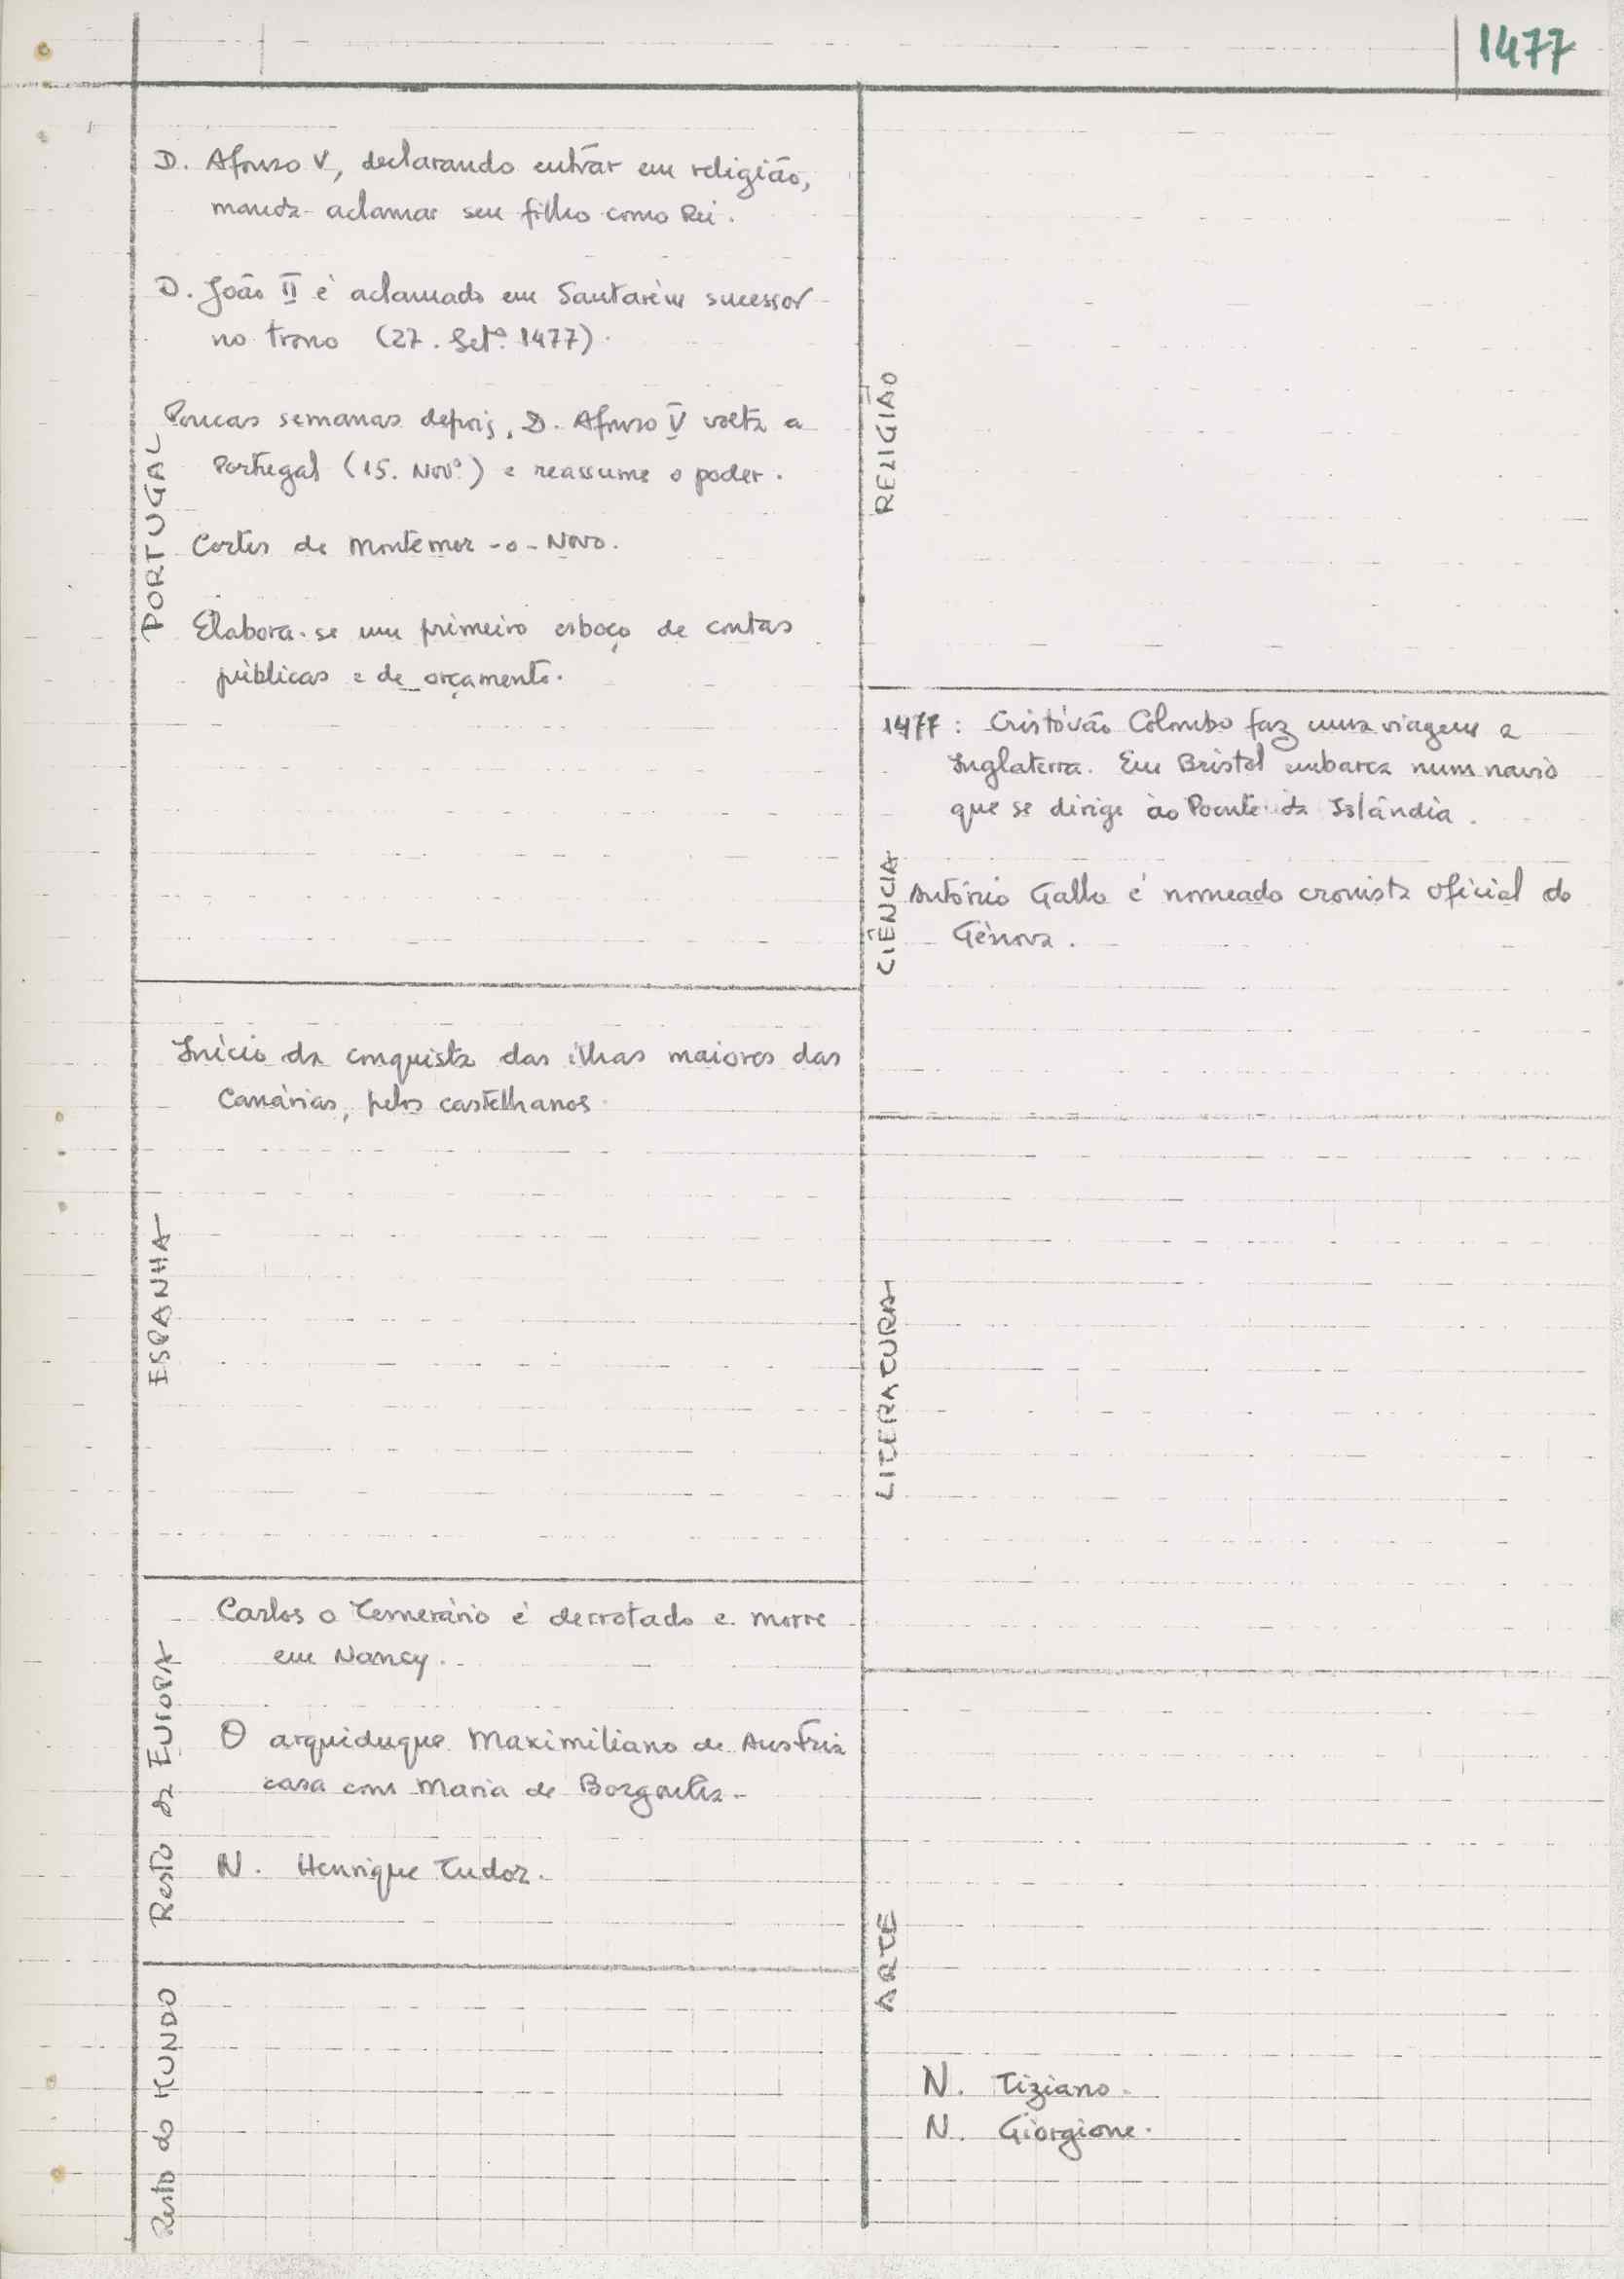 1477
PORTUGAL
D. Afonso V, declarando entrar em religião,
manda aclamar seu filho como Rei.
D. João II é aclamado em Santarém sucessor
no trono (27. Setº. 1477).
Poucas semanas depois, D. Afonso V volta a
Portugal (15. Novº.) e reassume o poder.
Cortes de Montemor-o-Novo.
Elabora-se um primeiro esboço de contas
públicas e de orçamento.
ESPANHA
Início da conquista das ilhas maiores das
Canárias, pelos castelhanos
Resto da EUROPA
Carlos o Temerário é derrotado e morre
em Nancy.
O arquiduque Maximiliano de Austria
casa com Maria de Borgonha.
N. Henrique Tudor.
Resto do MUNDO
RELIGIÃO
CIÊNCIA
1477: Cristóvão Colombo faz uma viagem a
Inglaterra. Em Bristol embarca num navio
que se dirige ao Poente da Islândia.
António Gallo é nomeado cronista oficial de
Génova.
LITERATURA
ARTE
N. Tiziano.
N. Giorgione.